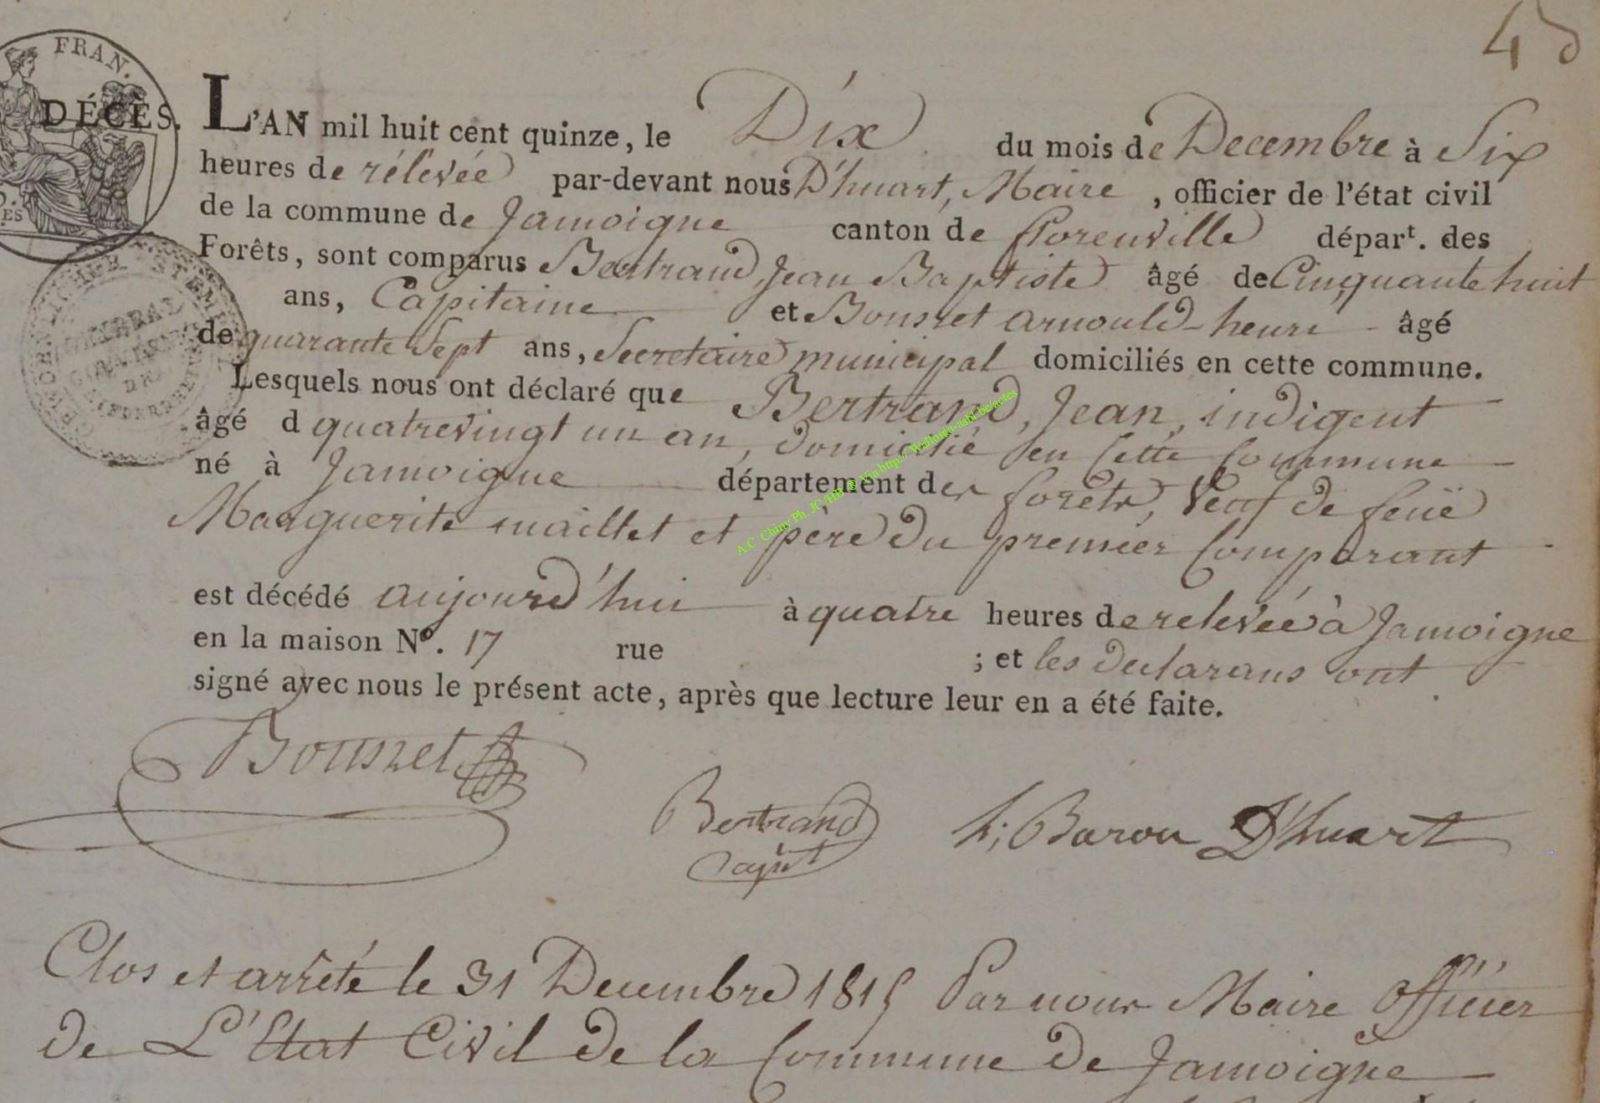 FRAN.
DÉCÈS.
L'AN mil huit cent quinze, le Dix du mois de Decembre à Six
heures de rélevée par-devant nous D'huart, Maire, officier de l'état civil
de la commune de Jamoigne canton de florenville départ. des
Forêts, sont comparus Bertrand Jean Baptiste âgé de Cinquante huit
ans, Capitaine et Bonsret arnould-henri âgé
de quarante Sept ans, Secretaire municipal domiciliés en cette commune.
Lesquels nous ont déclaré que Bertrand, Jean, indigent
âgé d quatrevingt un an, domicilié en Cette Commune
né à Jamoigne département des forêts, Veuf de feuë
Marguerite maillet et pere du premier Comparant
est décédé aujourd'hui à quatre heures de relevée à Jamoigne
en la maison Nº. 17 rue ; et les declarans ont
signé avec nous le présent acte, après que lecture leur en a été faite.
Bertrand
Capit
h: Baron D'huart
Clos et arrêté le 31 Decembre 1815 Par nous Maire Officier
de L'Etat Civil de la Commune de Jamoigne